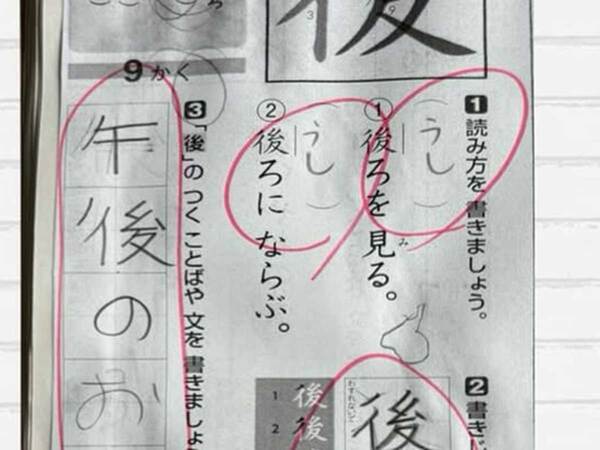 後
9かく
1 読み方を 書きましょう。
① 後ろを 見る。
み
うし
② 後ろに ならぶ。
うし
2 書きじ
わすれないで
後
1 後
2 後
3 「後」の つく ことばや 文を 書きましょ
午後のお